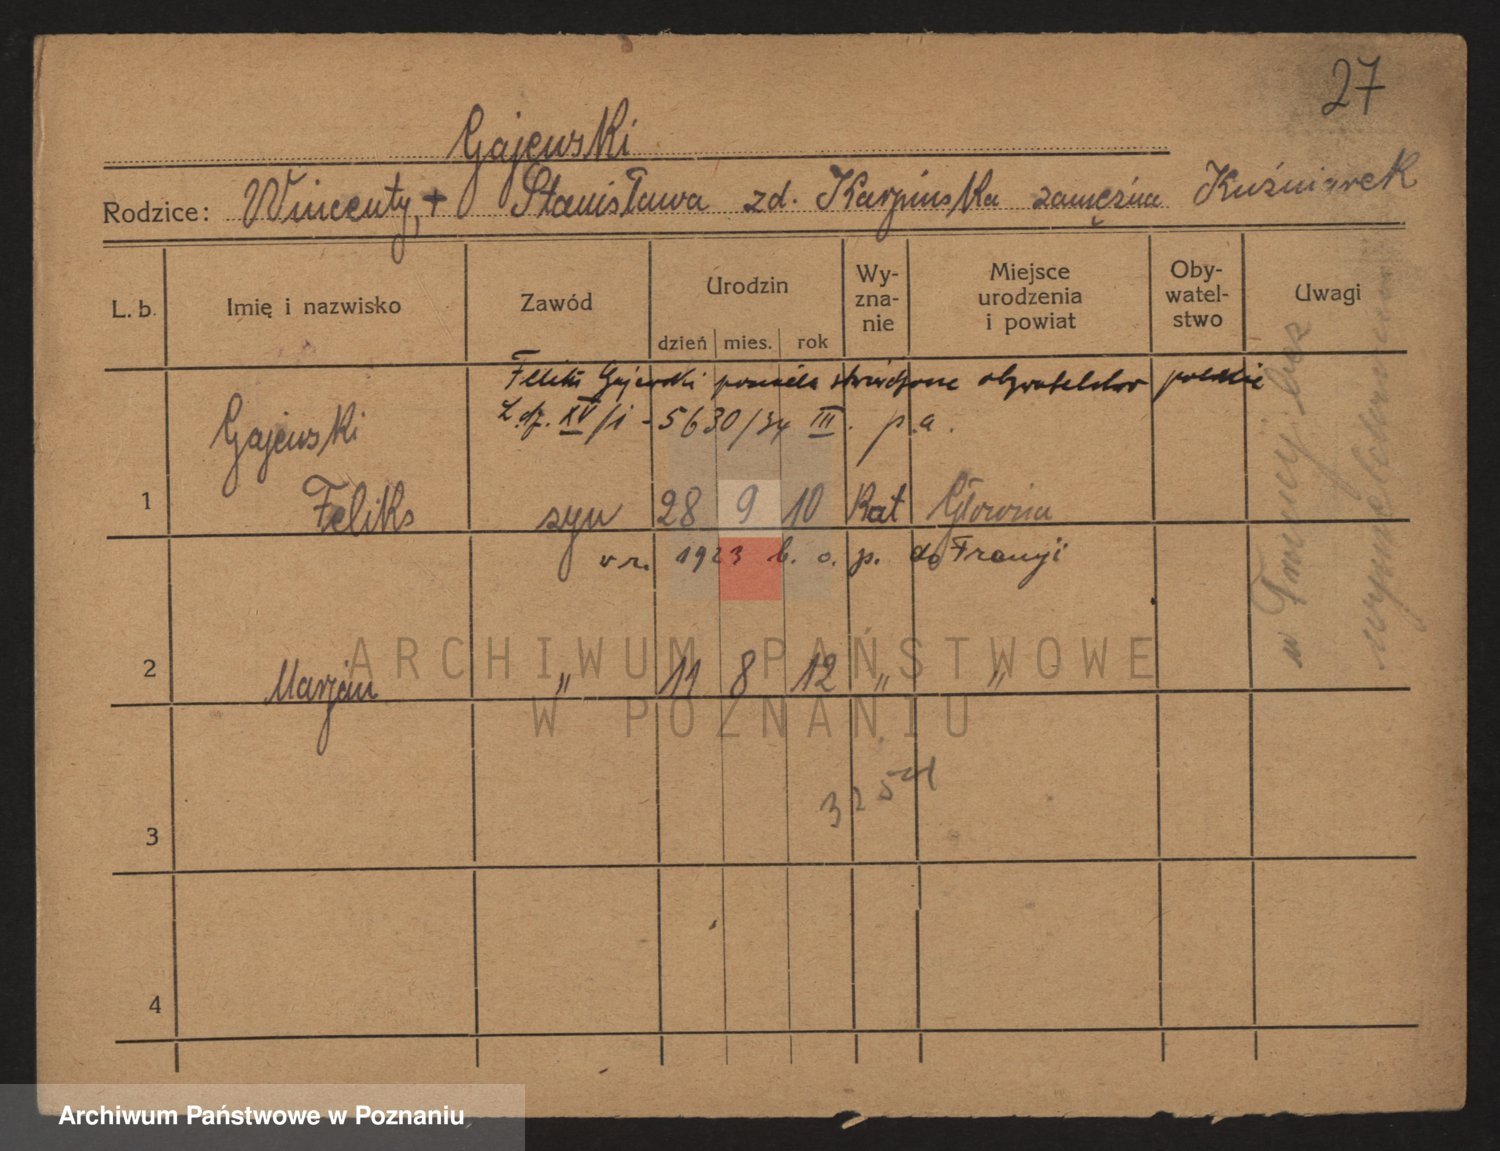 27
Gajewski
Rodzice: Wincenty, + Stanisława zd. Karpińska zamężna Kuźniarek
L. b. Imię i nazwisko Zawód Urodzin Wy-zna-nie Miejsce urodzenia i powiat Oby-watel-stwo Uwagi
dzień mies. rok
Feliks Gajewski posiada stwierdzone obywatelstwo polskie
L. dz. XV/1 - 5630/34 III. p.a.
Gajewski
1 Feliks syn 28 9 10 Kat Głowina
w r. 1923 b. o. p. do Francji
2 Marjan " 11 8 12 " "
3
3251
4
w Francji bez
ARCHIWUM PAŃSTWOWE
W POZNANIU
Archiwum Państwowe w Poznaniu